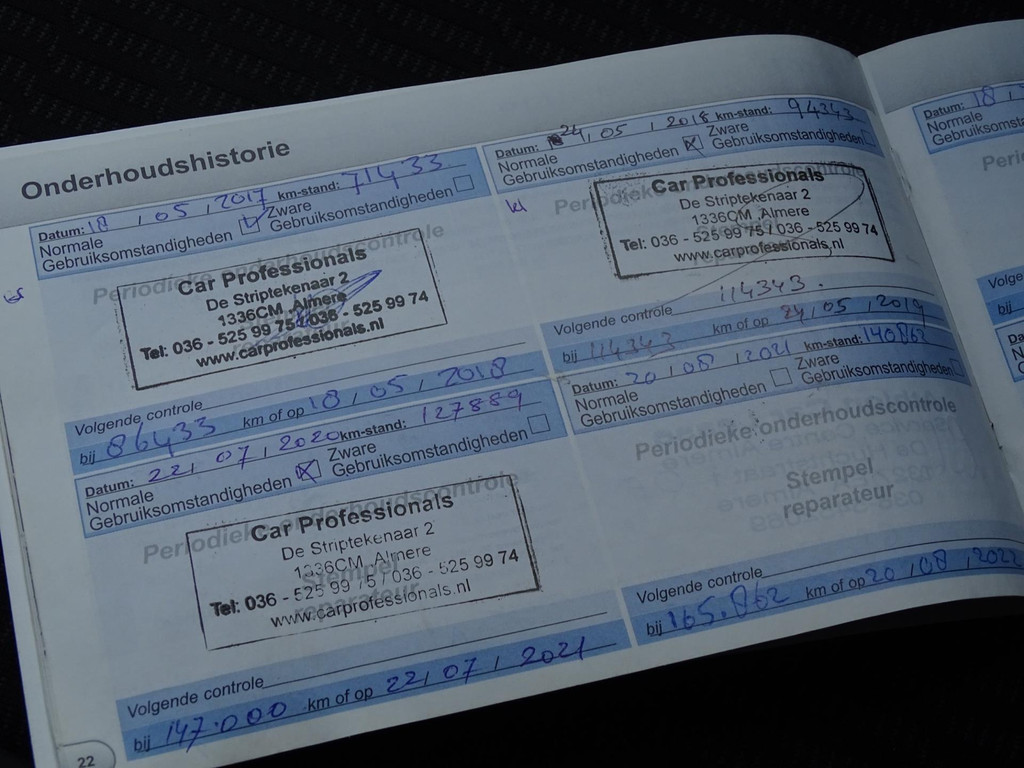 Onderhoudshistorie
Datum: 18 , 05 , 2017 km-stand: 71433
Normale Gebruiksomstandigheden
Zware Gebruiksomstandigheden
Periodieke onderhoudscontrole
Car Professionals
De Striptekenaar 2
1336CM Almere
Tel: 036 - 525 99 75 / 036 - 525 99 74
www.carprofessionals.nl
Volgende controle
bij 86433 km of op 18 , 05 , 2018
Datum: 24 , 05 , 2018 km-stand: 94343
Normale Gebruiksomstandigheden
Zware Gebruiksomstandigheden
Periodieke onderhoudscontrole
Car Professionals
De Striptekenaar 2
1336CM Almere
Tel: 036 - 525 99 75 / 036 - 525 99 74
www.carprofessionals.nl
114343.
Volgende controle
bij 114343 km of op 24 , 05 , 2019
Datum: 22 , 07 , 2020 km-stand: 127889
Normale Gebruiksomstandigheden
Zware Gebruiksomstandigheden
Periodieke onderhoudscontrole
Stempel
reparateur
Car Professionals
De Striptekenaar 2
1336CM Almere
Tel: 036 - 525 99 75 / 036 - 525 99 74
www.carprofessionals.nl
Volgende controle
bij 147.000 km of op 22 , 07 , 2021
Datum: 20 , 08 , 2021 km-stand: 140862
Normale Gebruiksomstandigheden
Zware Gebruiksomstandigheden
Periodieke onderhoudscontrole
Stempel
reparateur
Volgende controle
bij 165.862 km of op 20 , 08 , 2022
22
Datum: 18
Normale
Gebruiksomstan
Perio
Volge
bij